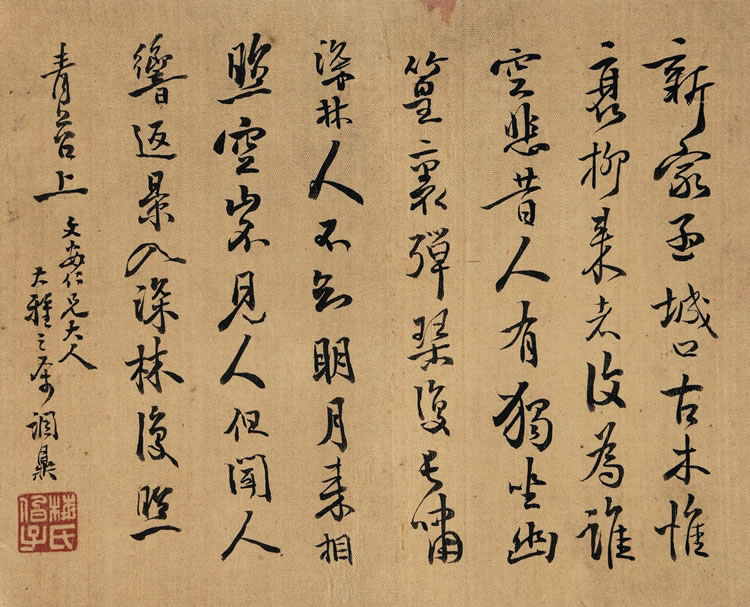 新家孟城口古木惟
衰柳来者復為誰
空悲昔人有獨坐幽
篁裏彈琴復長嘯
深林人不知明月来相
照空山不見人但聞人
響返景入深林復照
青苔上
仁兄大人
大雅之属 調鼎
梅氏